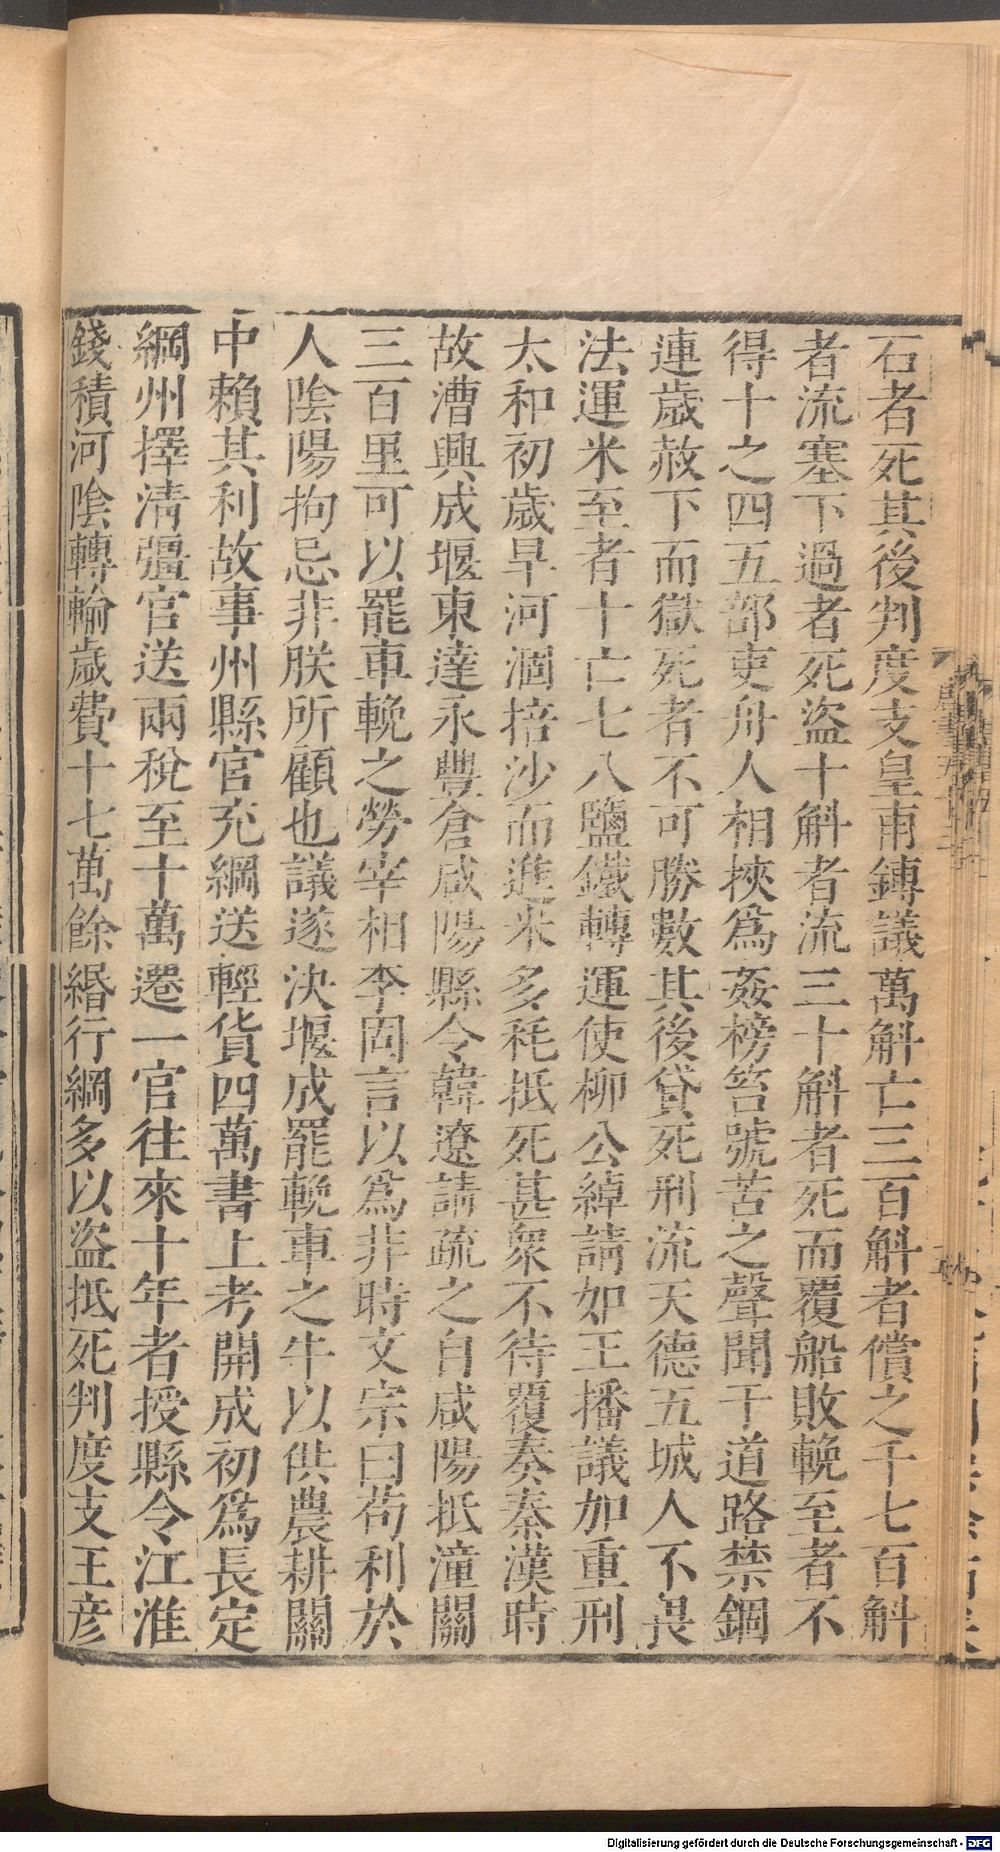 石者死其後判度支皇甫鎛議萬斛亡三百斛者償之千七百斛
者流塞下過者死盜十斛者流三十斛者死而覆船敗輓至者不
得十之四五部吏舟人相挾爲姦榜笞號苦之聲聞于道路禁錮
連歲赦下而獄死者不可勝數其後貸死刑流天德五城人不畏
法運米至者十亡七八鹽鐵轉運使柳公綽請如王播議加重刑
太和初歲旱河涸掊沙而進米多耗抵死甚衆不待覆奏秦漢時
故漕興成堰東達永豐倉咸陽縣令韓遼請疏之自咸陽抵潼關
三百里可以罷車輓之勞宰相李固言以爲非時文宗曰苟利於
人陰陽拘忌非朕所顧也議遂決堰成罷輓車之牛以供農耕關
中賴其利故事州縣官充綱送輕貨四萬書上考開成初爲長定
綱州擇清彊官送兩稅至十萬遷一官往來十年者授縣令江淮
錢積河陰轉輸歲費十七萬餘緡行綱多以盜抵死判度支王彥
Digitalisierung gefördert durch die Deutsche Forschungsgemeinschaft - DFG